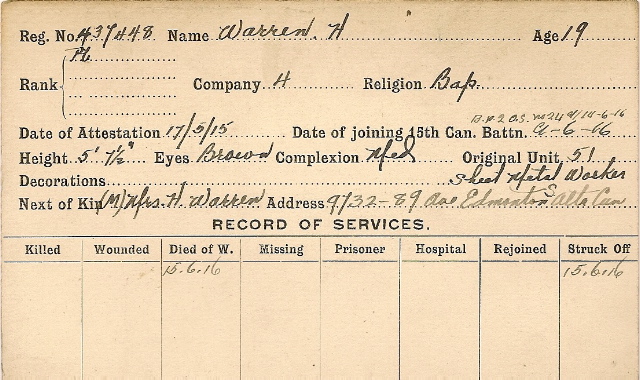 Reg. No. 437448 Name Warren. H Age 19
Rank Pt Company 4 Religion Bap.
B.P.2 O.S.
Date of Attestation 17/5/15 Date of joining 15th Can. Battn. -6-16
Height 5' 7½" Eyes Brown Complexion Med Original Unit 51
Decorations Sheet Metal Worker
Next of Kin (M) Mrs. H. Warren Address 9732-89 Ave Edmonton S Alta Can
RECORD OF SERVICES.
Killed Wounded Died of W. Missing Prisoner Hospital Rejoined Struck Off
15.6.16 15.6.16